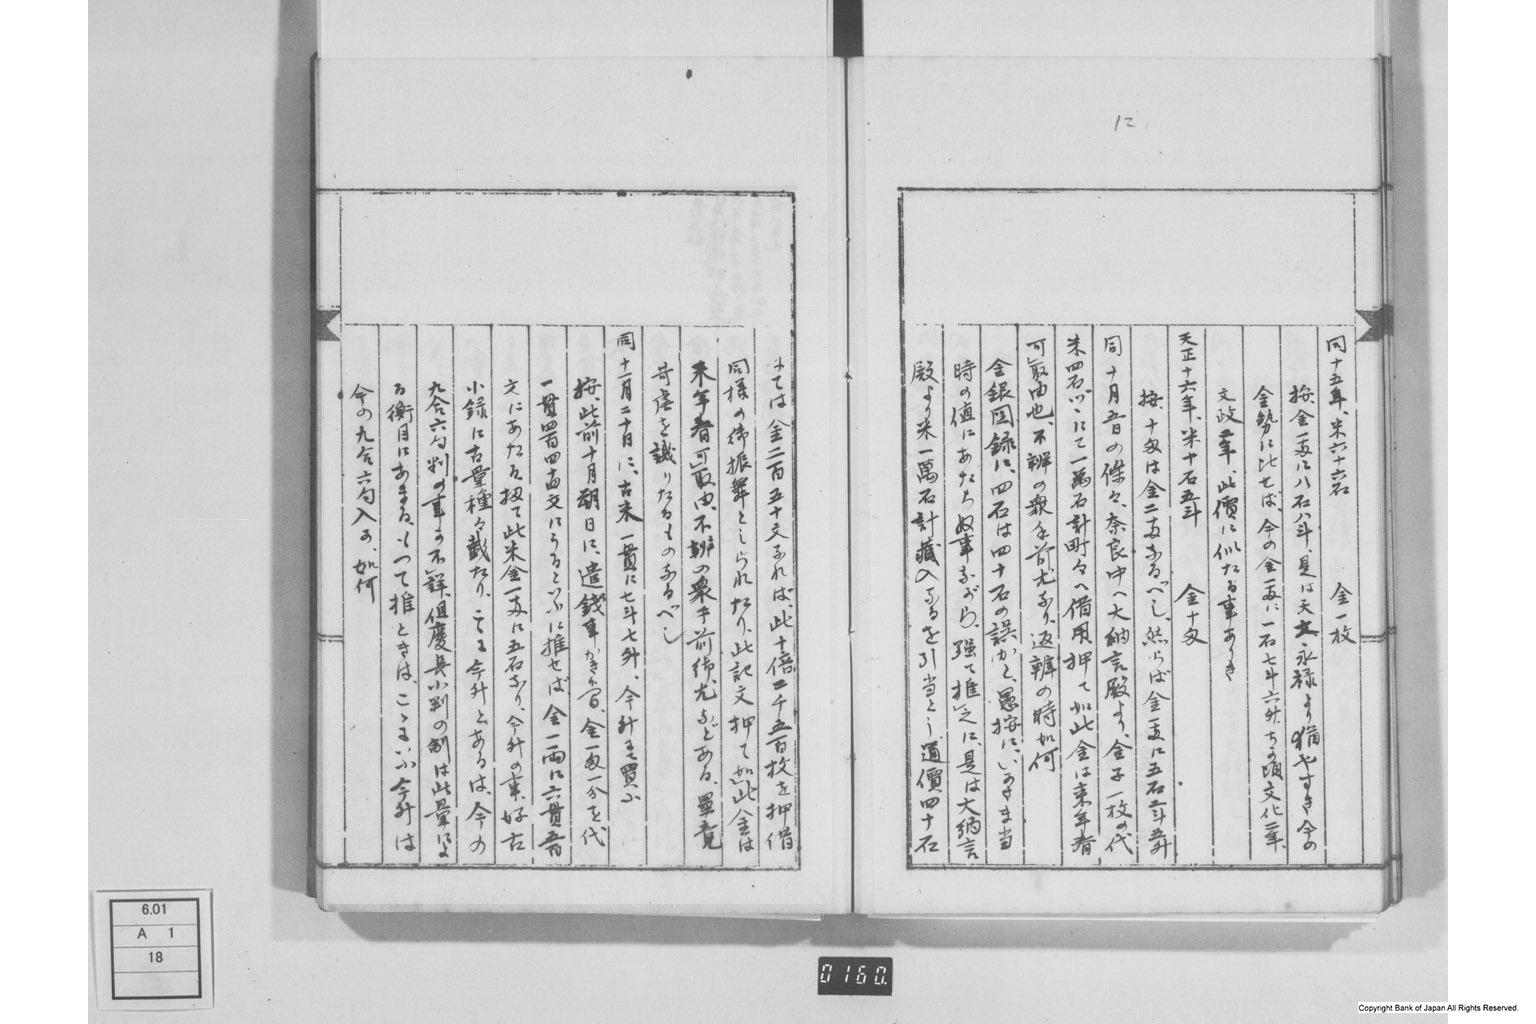 同十五年、米六十六石　　金一枚
按、金一両に八石八斗、是は天文永禄より猶やすき今の
金勢に比せば、今の金一両に一石七斗六升、ちの頃文化二年
文政二年、此價に似たる事ありき
天正十六年、米十石五斗　　金十匁
按、十匁は金二両なるべし、然らば金一両に五石二斗五升
同十月五日の條々、奈良中へ大納言殿より、金子一枚の代
米四石づつにて一萬石計町々へ借用、押て如此金は来年春
可取由也、不辨の衆手前尤なり、返辨の時如何
金銀図録に、四石は四十石の誤かと、愚按に、いかさま当
時の値にあたらぬ事ながら、強て推之に、是は大納言
殿より米一萬石計蔵入なるを引当とし、道價四十石
にては金二百五十文なれば、此十倍二千五百枚を押借
同様の御振舞としられたり、此記文押て如此金は
来年春可取由、不辨の衆手前御尤などある、畢竟
苛虐を譏りたるものなるべし
同十一月二十日に、古米一貫に七斗七升、今升にて買ふ
按、此前十月朔日に、遣銭事かき[]、金一両一分を代
一貫四百四十文にうるといふに推せば金一両に六貫五百
文にあたる、扨て此米金一両に五石なり、今升の事、好古
小録に古量種々載たり、こゝに今升とあるは、今の
九合六勺判の事か不詳、但慶長小判の制は此量により
る衡目にあまる、もつて推ときは、こゝにいふ今升は
今の九合六勺入か、如何
6.01
A 1
18
0160
Copyright Bank of Japan All Rights Reserved.